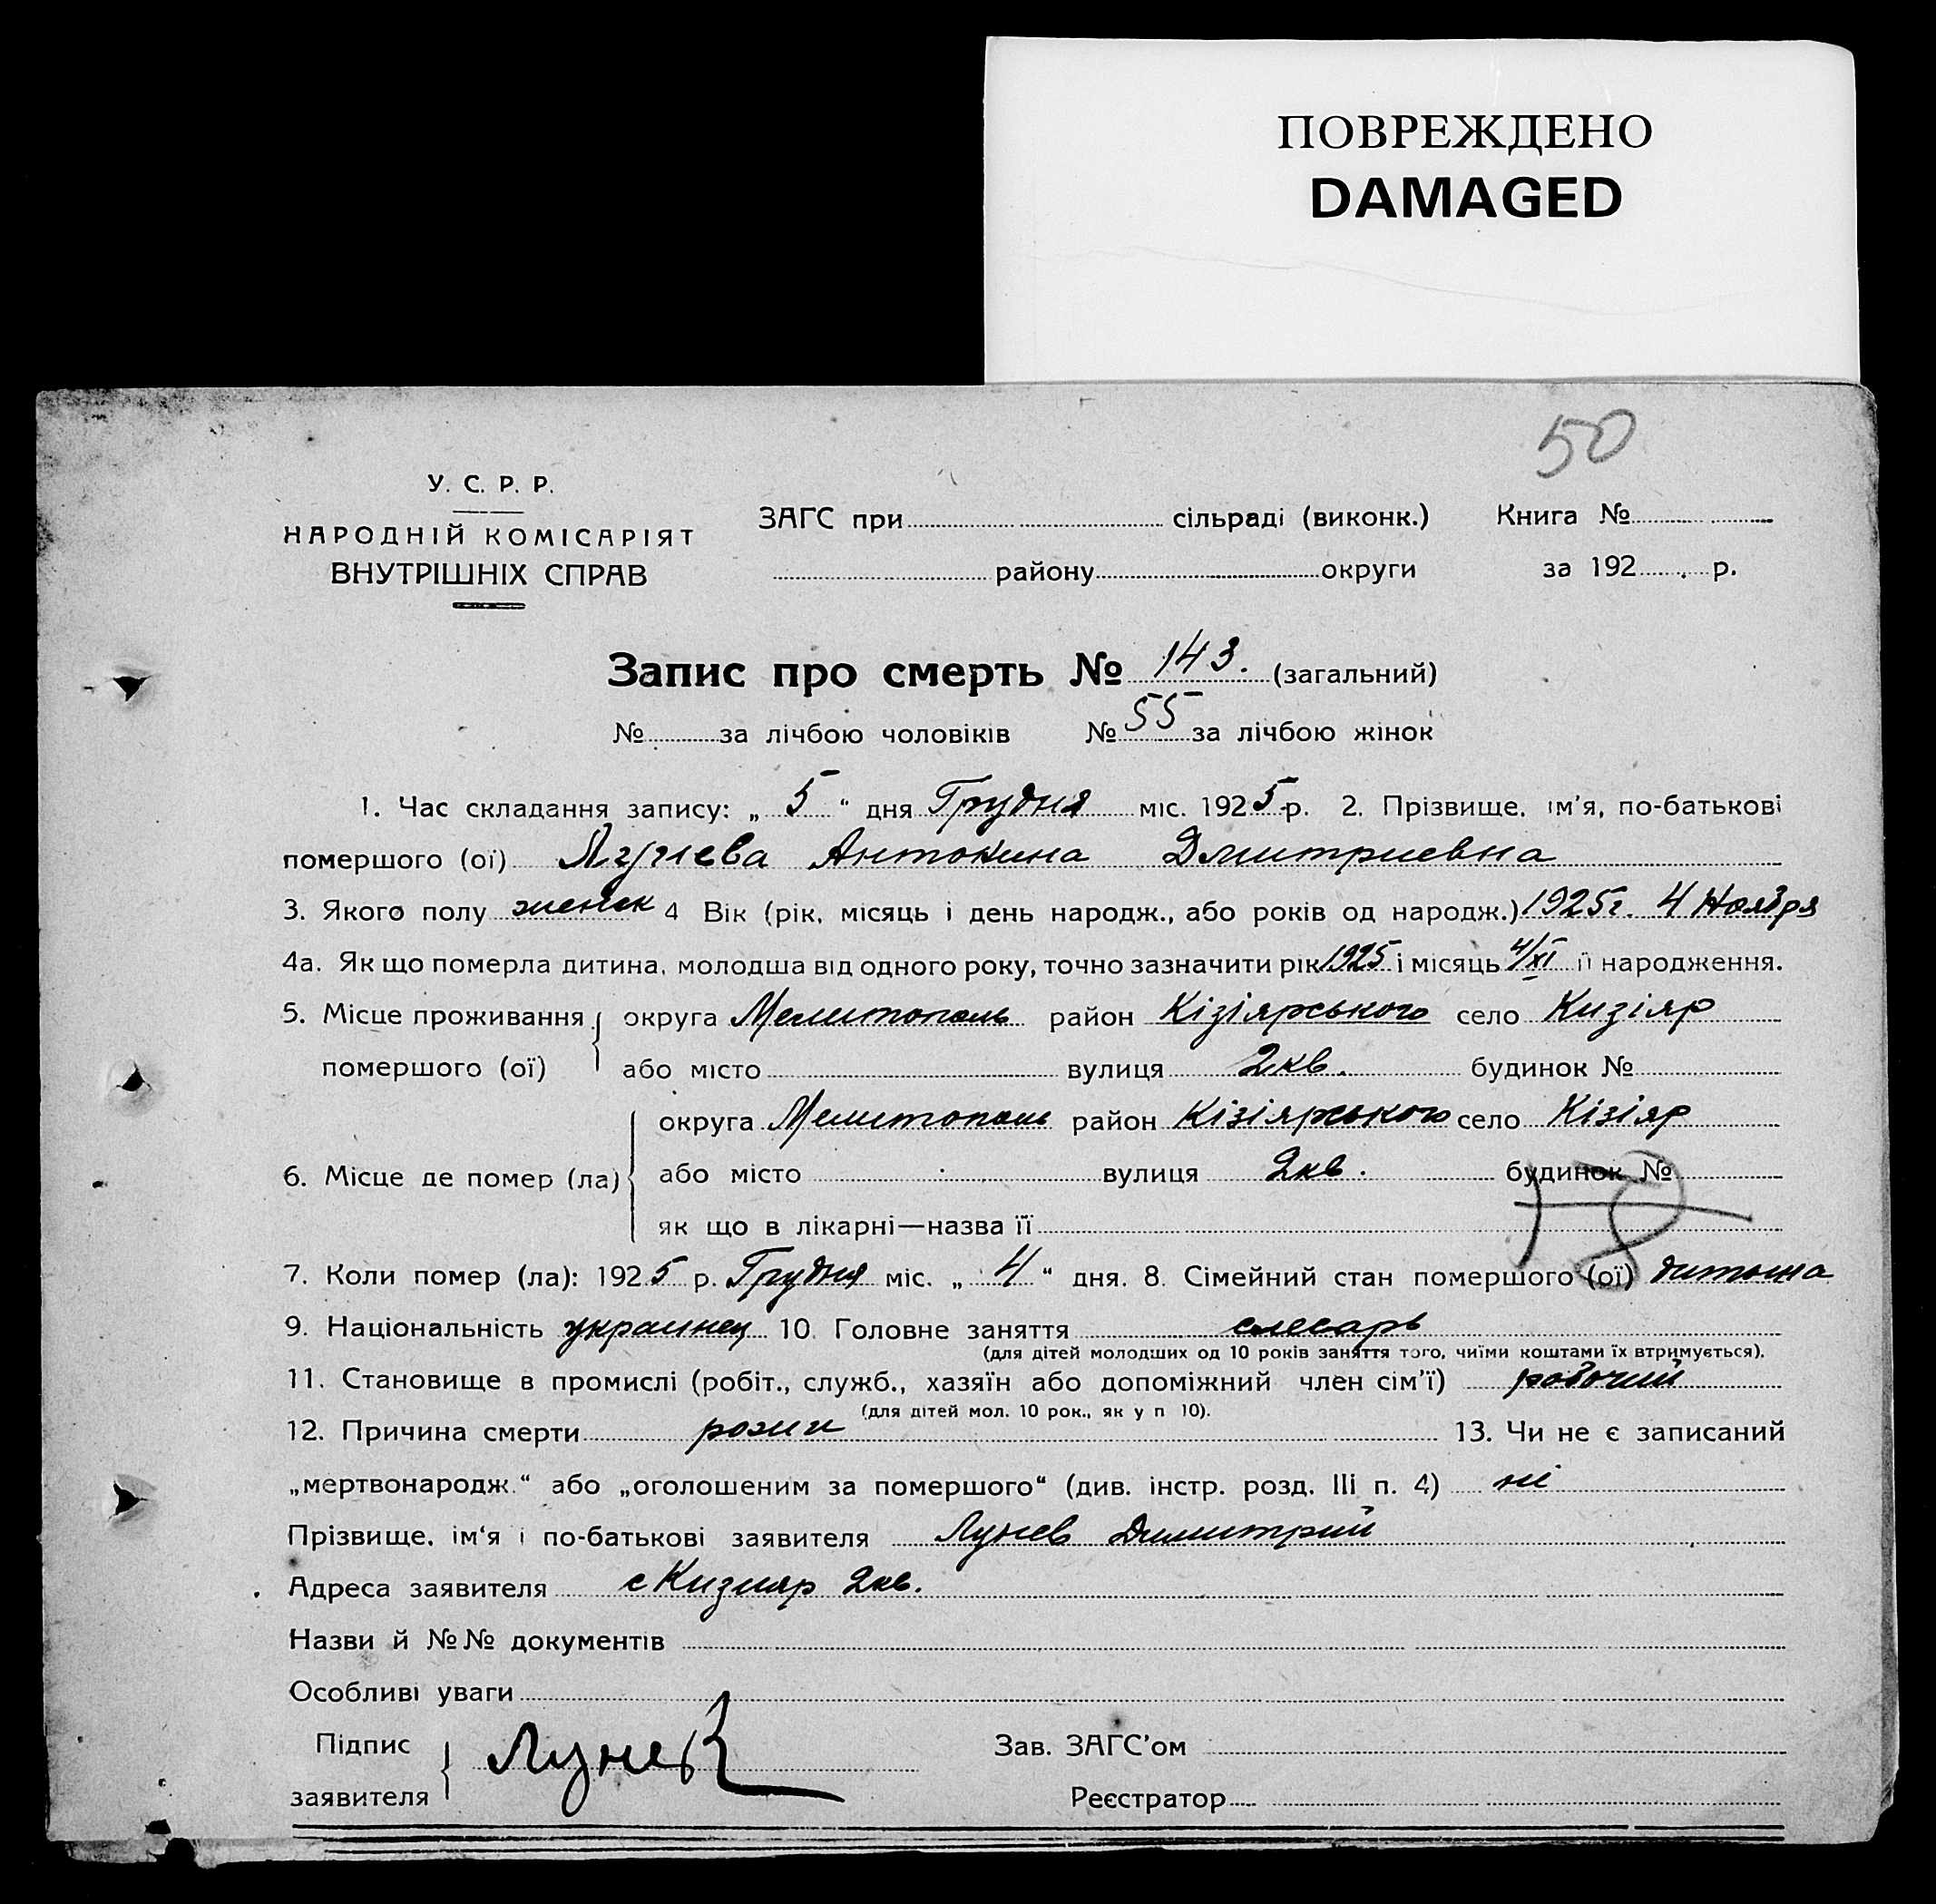 ПОВРЕЖДЕНО
DAMAGED
50
У. С. Р. Р.
НАРОДНІЙ КОМІСАРІЯТ
ВНУТРІШНІХ СПРАВ
ЗАГС при сільраді (виконк.) Книга №
району округи за 192 р.
Запис про смерть № 143. (загальний)
№ за лічбою чоловіків № 55 за лічбою жінок
1. Час складання запису: „ 5 “ дня Грудня міс. 1925 р. 2. Прізвище, ім'я, по-батькові
помершого (ої) Лунева Антонина Дмитриевна
3. Якого полу женск 4 Вік (рік, місяць і день народж., або років од народж.) 1925г. 4 Ноября
4а. Як що померла дитина, молодша від одного року, точно зазначити рік 1925 і місяць 4/XI її народження.
5. Місце проживання округа Мелитополь район Кізіярського село Кизіяр
помершого (ої) або місто вулиця 2кв. будинок №
округа Мелитополь район Кізіярського село Кізіяр
6. Місце де помер (ла) або місто вулиця 2кв. будинок №
як що в лікарні—назва її
7. Коли помер (ла): 1925 р. Грудня міс. „ 4 “ дня. 8. Сімейний стан помершого (ої) дитына
9. Національність украинец 10. Головне заняття слесарь
(для дітей молодших од 10 років заняття того, чиїми коштами їх втримується).
11. Становище в промислі (робіт., служб., хазяїн або допоміжний член сім'ї) рабочий
(для дітей мол. 10 рок., як у п 10).
12. Причина смерти рожи 13. Чи не є записаний
„мертвонародж.“ або „оголошеним за помершого“ (див. інстр. розд. III п. 4) ні
Прізвище, ім'я і по-батькові заявителя Лунев Димитрий
Адреса заявителя с Кизияр 2кв.
Назви й №№ документів
Особливі уваги
Підпис
заявителя Лунев
Зав. ЗАГС'ом
Реєстратор